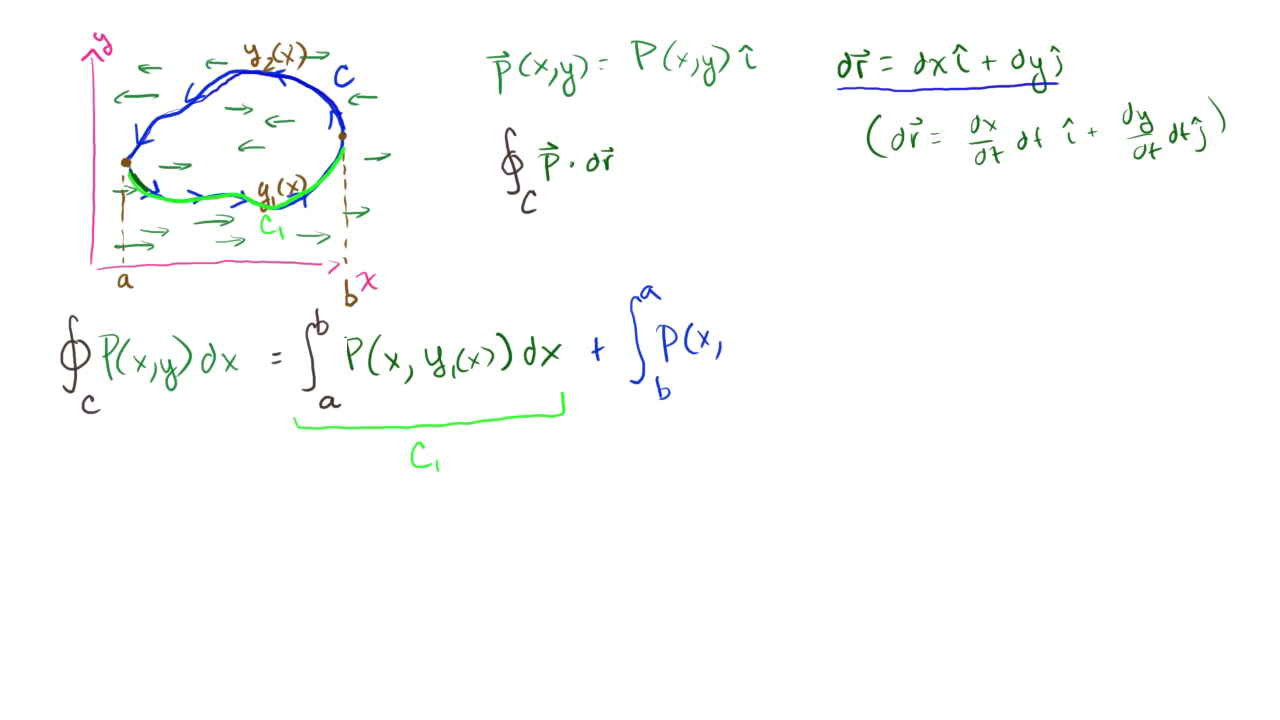 y
y₂(x)
C
y₁(x)
C₁
a
b
x
p⃗(x,y) = P(x,y) î
dr⃗ = dx î + dy ĵ
(dr⃗ = dx/dt dt î + dy/dt dt ĵ)
∮_C p⃗ · dr⃗
∮_C P(x,y) dx = ∫_a^b P(x, y₁(x)) dx + ∫_b^a P(x,
C₁